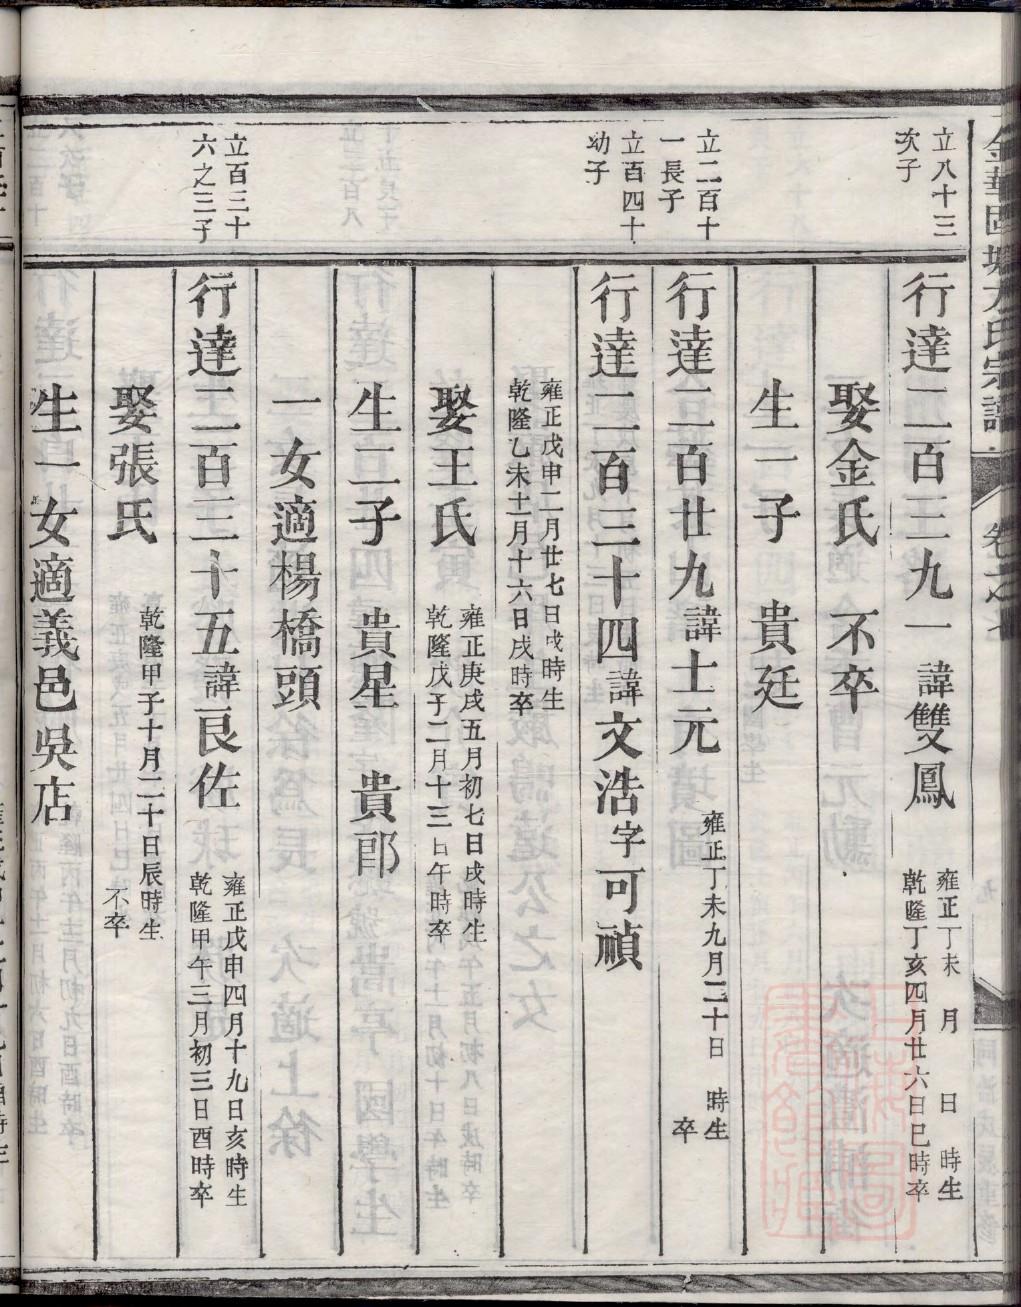 金華固塘方氏宗譜 卷之七
立八十三
次子
行達二百三九一 諱雙鳳 雍正丁未 月 日 時生
乾隆丁亥四月廿六日巳時卒
娶金氏 不卒
生一子 貴廷
立二百十
一長子
行達二百廿九諱士元 雍正丁未九月二十日 時生
卒
立百四十
幼子
行達二百三十四諱文浩字可禎
雍正戊申二月廿七日戌時生
乾隆乙未十一月十六日戌時卒
娶王氏 雍正庚戌五月初七日戌時生
乾隆戊子二月十三日午時卒
生二子 貴星 貴郎
一女適楊橋頭
立百三十
六之三子
行達二百三十五諱良佐 雍正戊申四月十九日亥時生
乾隆甲午三月初三日酉時卒
娶張氏 乾隆甲子十月二十日辰時生
不卒
生一女適義邑吳店